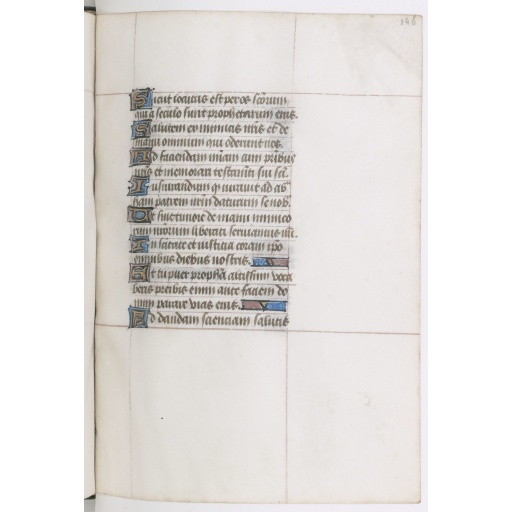 146
Sicut locutus est per os sctorum
qui a seculo sunt prophetarum eius.
Salutem ex inimicis nris et de
manu omnium qui oderunt nos.
Ad faciendam miam cum pribus
nris et memorari testamti sui sci.
Iusiurandum q iurauit ad ab
ham patrem nrm daturum se nob
Ut sine timore de manu inimico
rum nrorum liberati seruiamus illi.
In scitate et iusticia coram ipo
omnibus diebus nostris.
Et tu puer propha altissimi voca
beris preibis enim ante faciem do
mini parare vias eius.
Ad dandam scienciam salutis